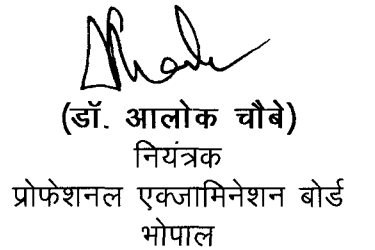 (डॉ. आलोक चौबे)
नियंत्रक
प्रोफेशनल एक्जामिनेशन बोर्ड
भोपाल